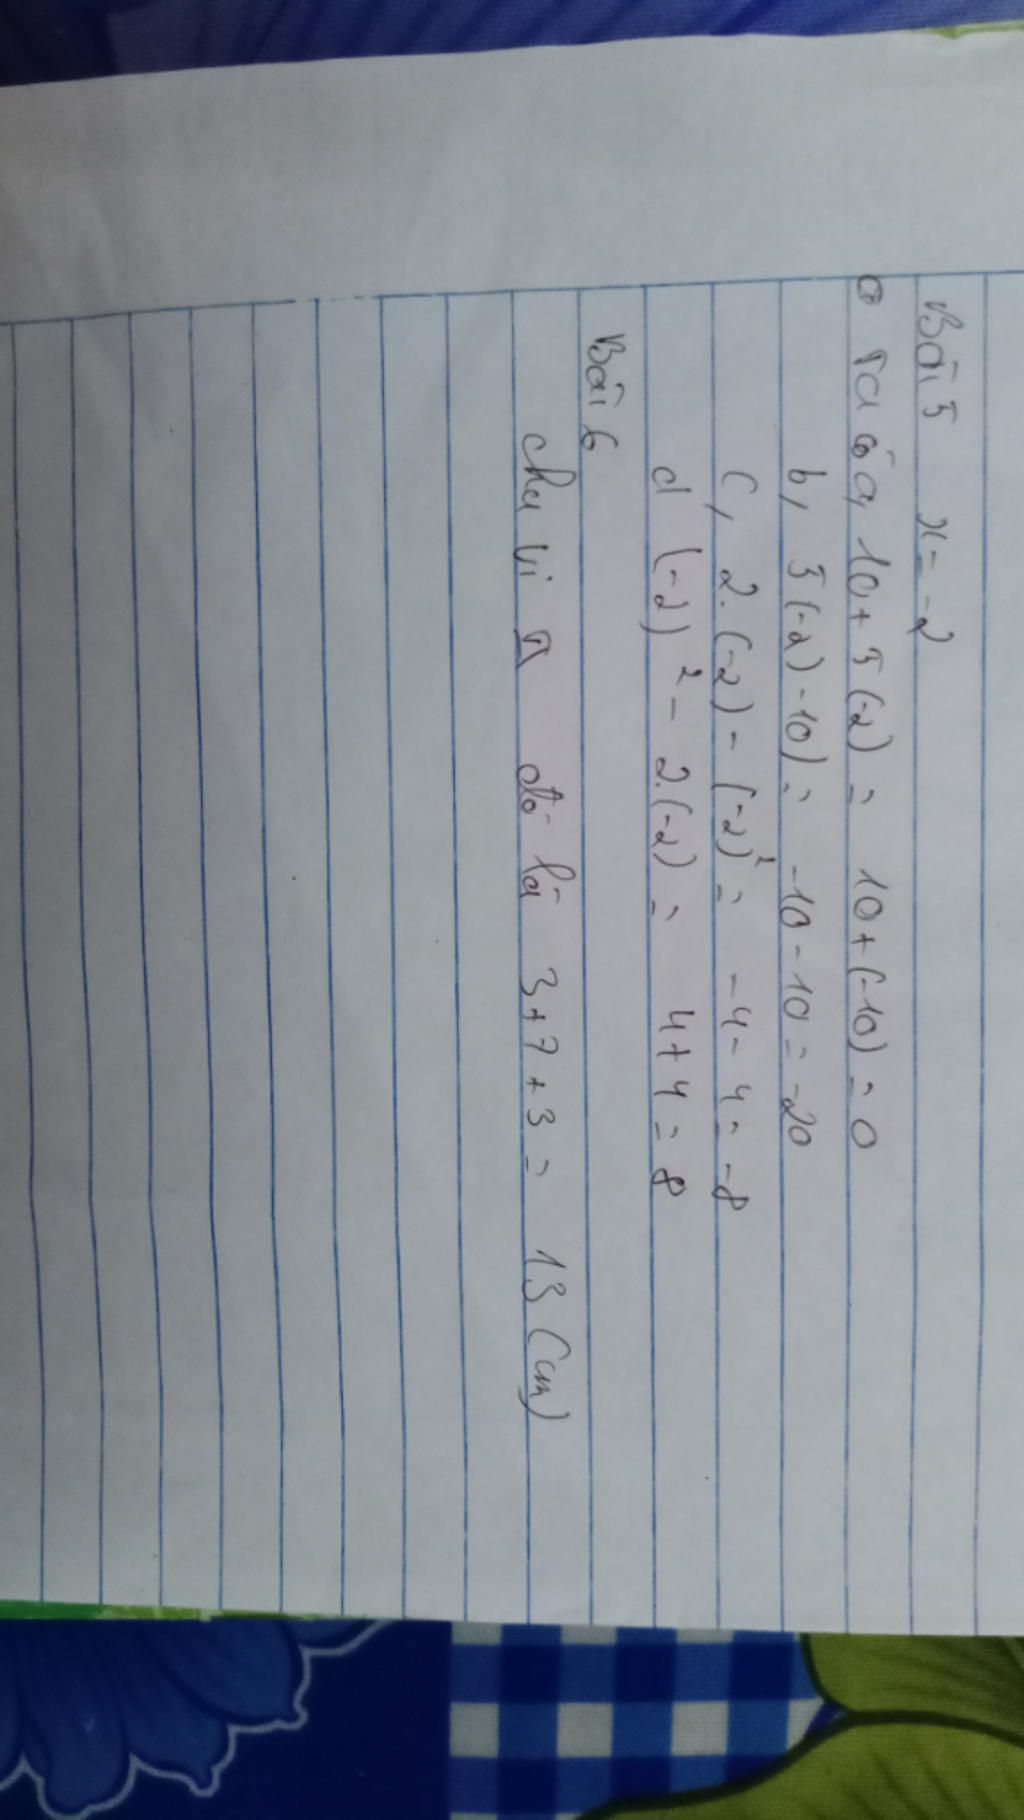 Bài 5 x = -2
Ta có a, 10 + 5(-2) = 10 + (-10) = 0
b, 5(-2) - 10) = -10 - 10 = -20
c, 2.(-2) - (-2)² = -4 - 4 = -8
d (-2)² - 2.(-2) = 4 + 4 = 8
Bài 6
chu vi đó là 3 + 7 + 3 = 13 (cm)